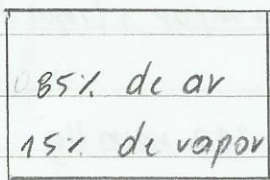 85% de ar
15% de vapor